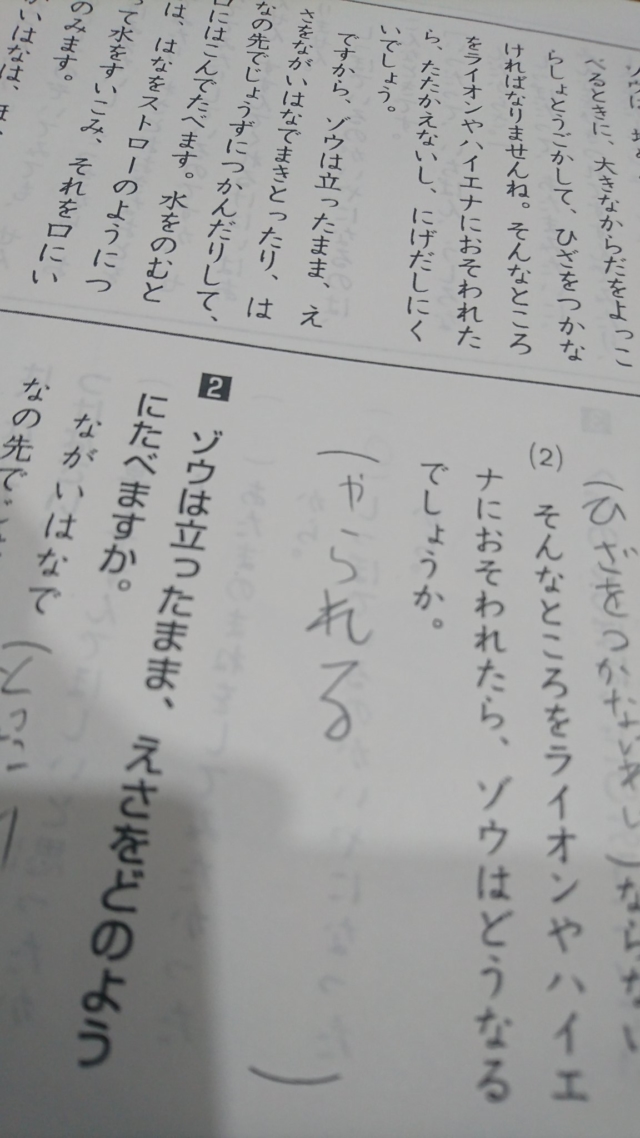 べるときに、大きなからだをよっこ
らしょとうごかして、ひざをつかな
ければなりませんね。そんなところ
をライオンやハイエナにおそわれた
ら、たたかえないし、にげだしにく
いでしょう。
ですから、ゾウは立ったまま、え
さをながいはなでまきとったり、は
なの先でじょうずにつかんだりして、
口にはこんでたべます。水をのむと
は、はなをストローのようにつ
って水をすいこみ、それを口にい
のみます。
(ひざをつかなければ)ならない
(2) そんなところをライオンやハイエ
ナにおそわれたら、ゾウはどうなる
でしょうか。
(やられる)
2 ゾウは立ったまま、えさをどのよう
にたべますか。
ながいはなで
なの先で